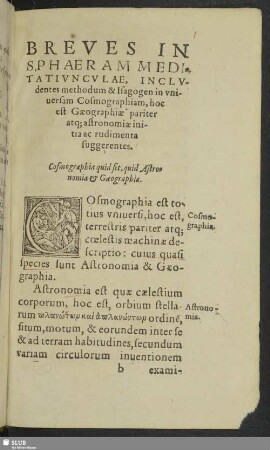 BREVES IN
SPHAERAM MEDI-
TATIVNCVLAE, INCLV-
dentes methodum & Isagogen in vni-
uersam Cosmographiam, hoc
est Gæographiæ pariter
atq; astronomiæ ini-
tia ac rudimenta
suggerentes.
Cosmographia quid sit, quid Astro
nomia & Gæographia.
COsmographia est to-
tius vniuersi, hoc est,
terrestris pariter atq;
cœlestis machinæ de-
scriptio: cuius quasi
species sunt Astronomia & Gæo-
graphia.
Cosmo-
graphia.
Astronomia est quæ cælestium
corporum, hoc est, orbium stella-
rum πλανώτωρ καὶ ἀπλανώστωρ ordinē,
situm, motum, & eorundem inter se
& ad terram habitudines, secundum
variam circulorum inuentionem
Astrono-
mia.
b exami-
SLUB